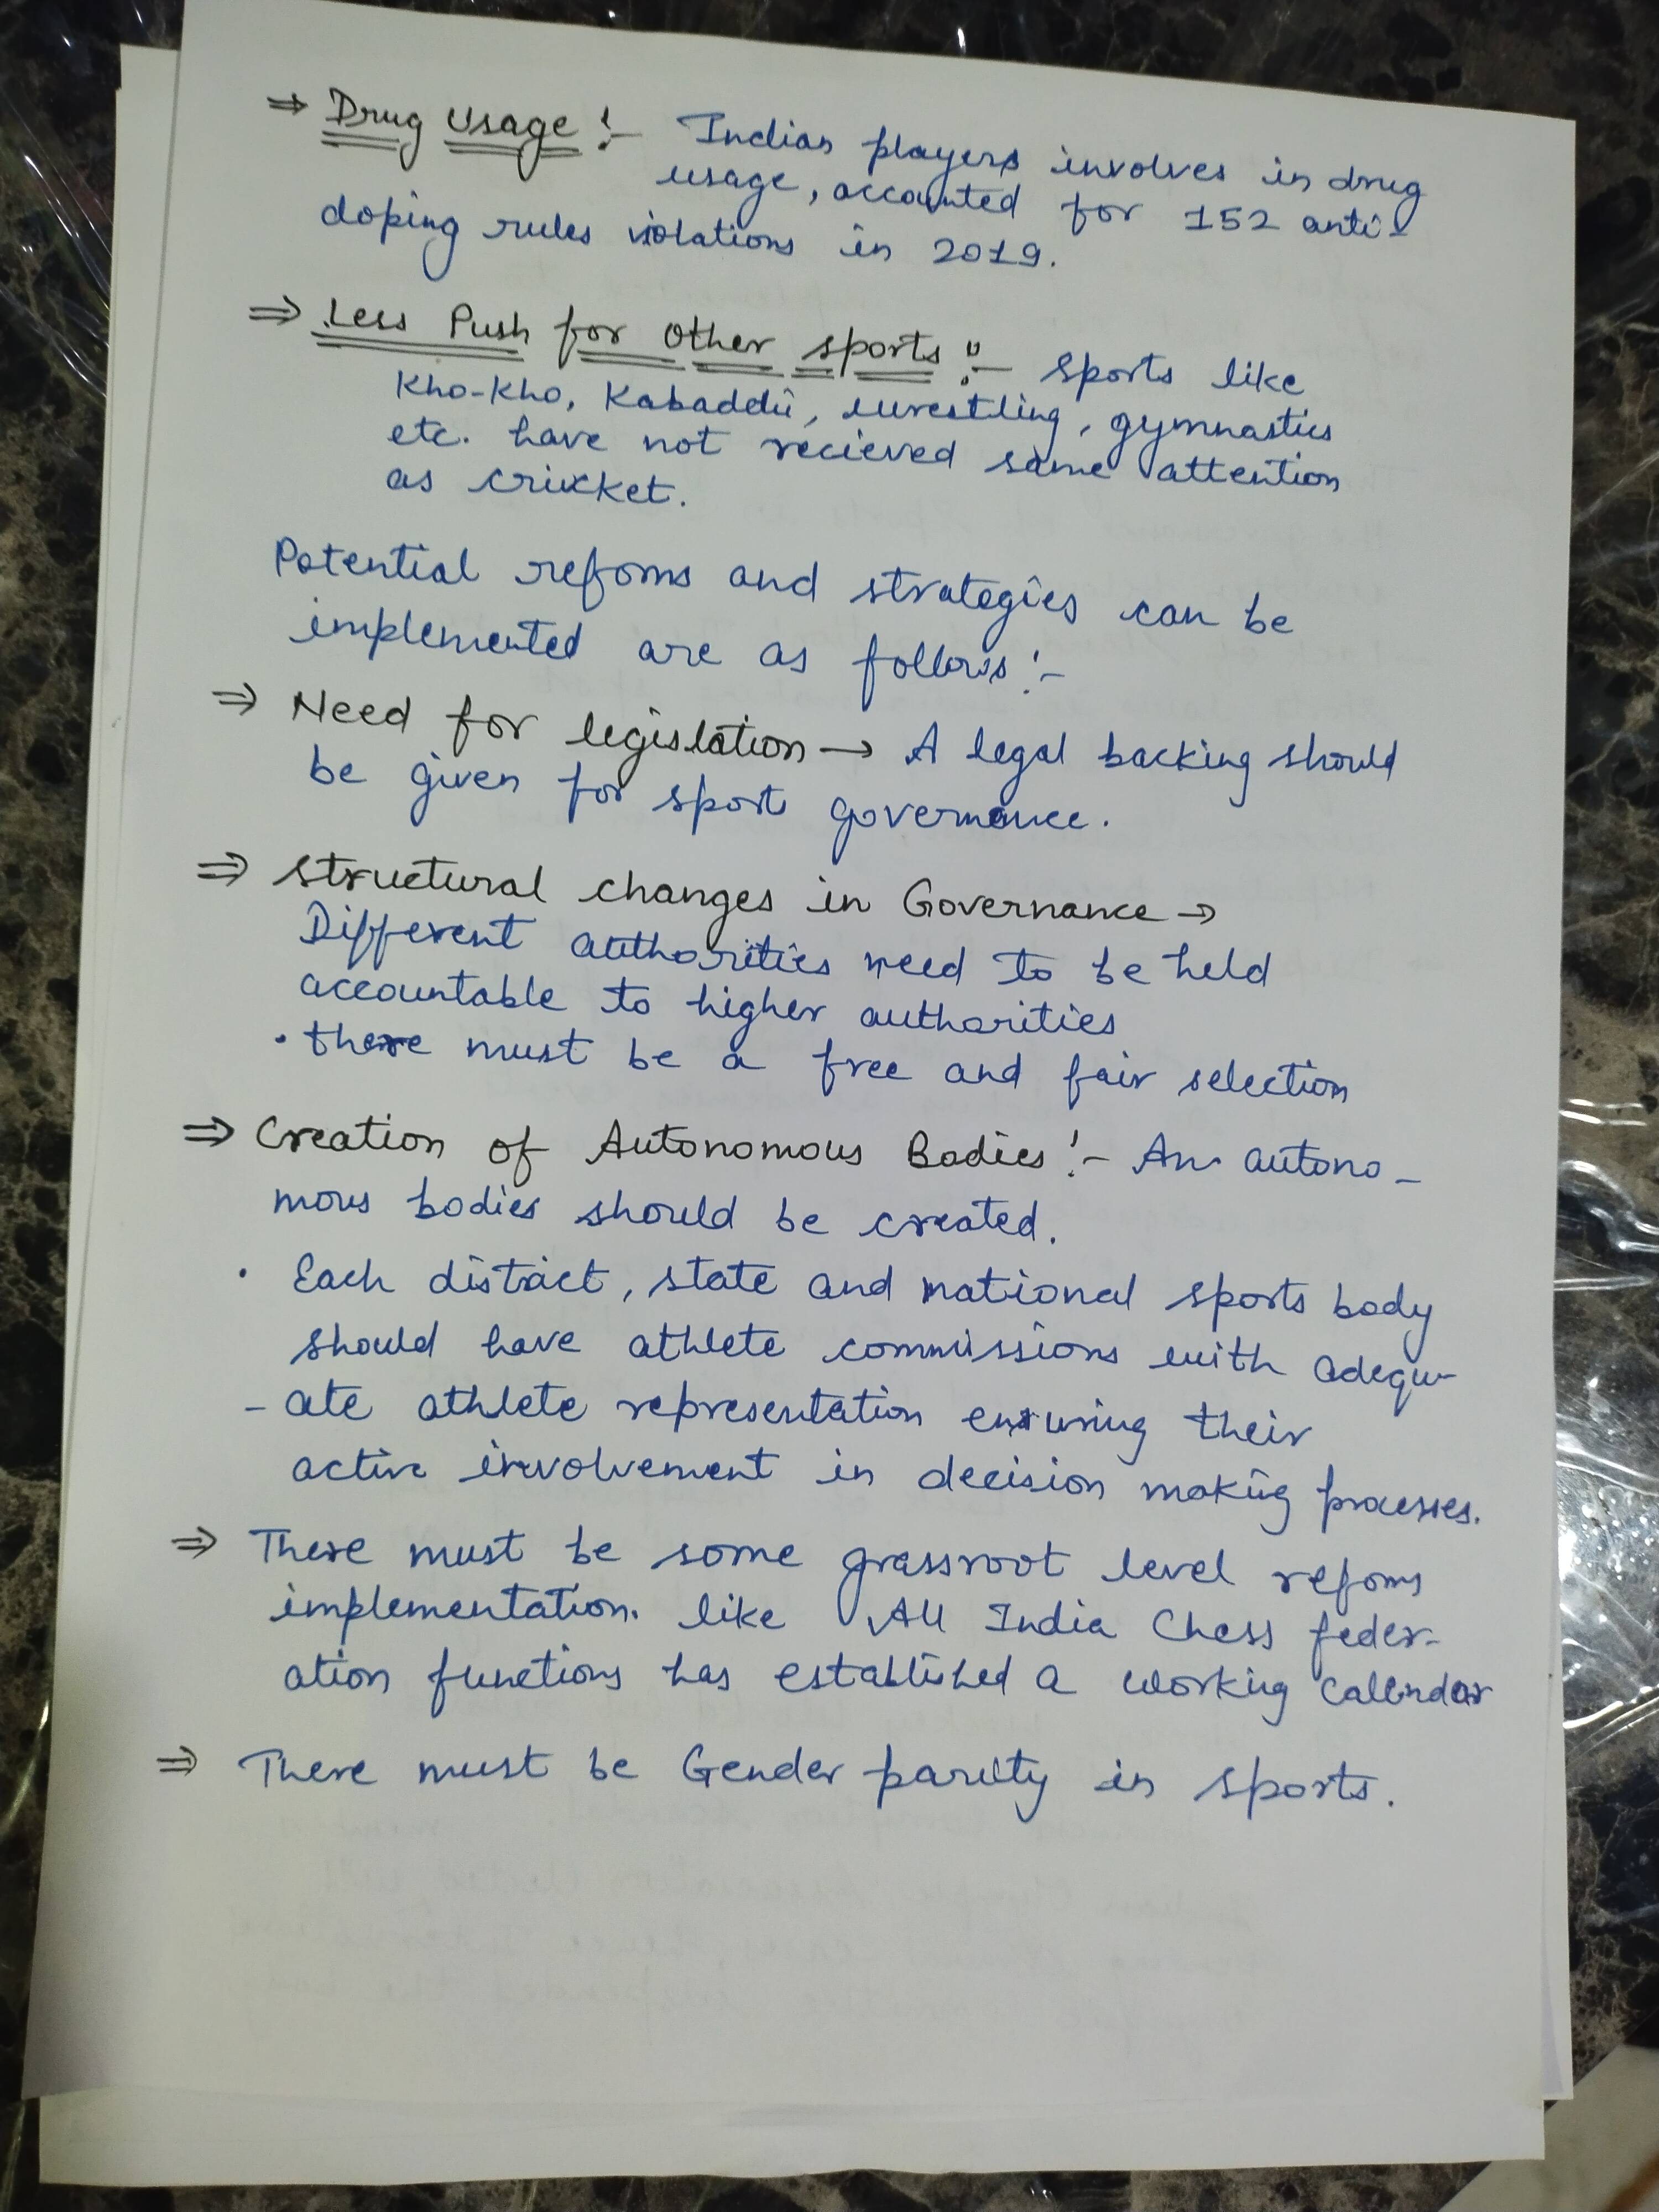 ⇒ Drug Usage :- Indian players involves in drug
usage, accounted for 152 anti-
doping rules violations in 2019.
⇒ Less Push for Other sports :- sports like
Kho-Kho, Kabaddi, wrestling, gymnastics
etc. have not recieved same attention
as cricket.
Potential refoms and strategies can be
implemented are as follows :-
⇒ Need for legislation → A legal backing should
be given for sport governance.
⇒ Structural changes in Governance →
Different authorities need to be held
accountable to higher authorities
• there must be a free and fair selection
⇒ Creation of Autonomous Bodies :- An autono-
mous bodies should be created.
• Each district, state and national sports body
should have athlete commissions with adequ-
- ate athlete representation ensuring their
active involvement in decision making processes.
⇒ There must be some grassroot level refoms
implementation. like All India Chess feder-
ation functions has established a working calendar
⇒ There must be Gender parity in sports.